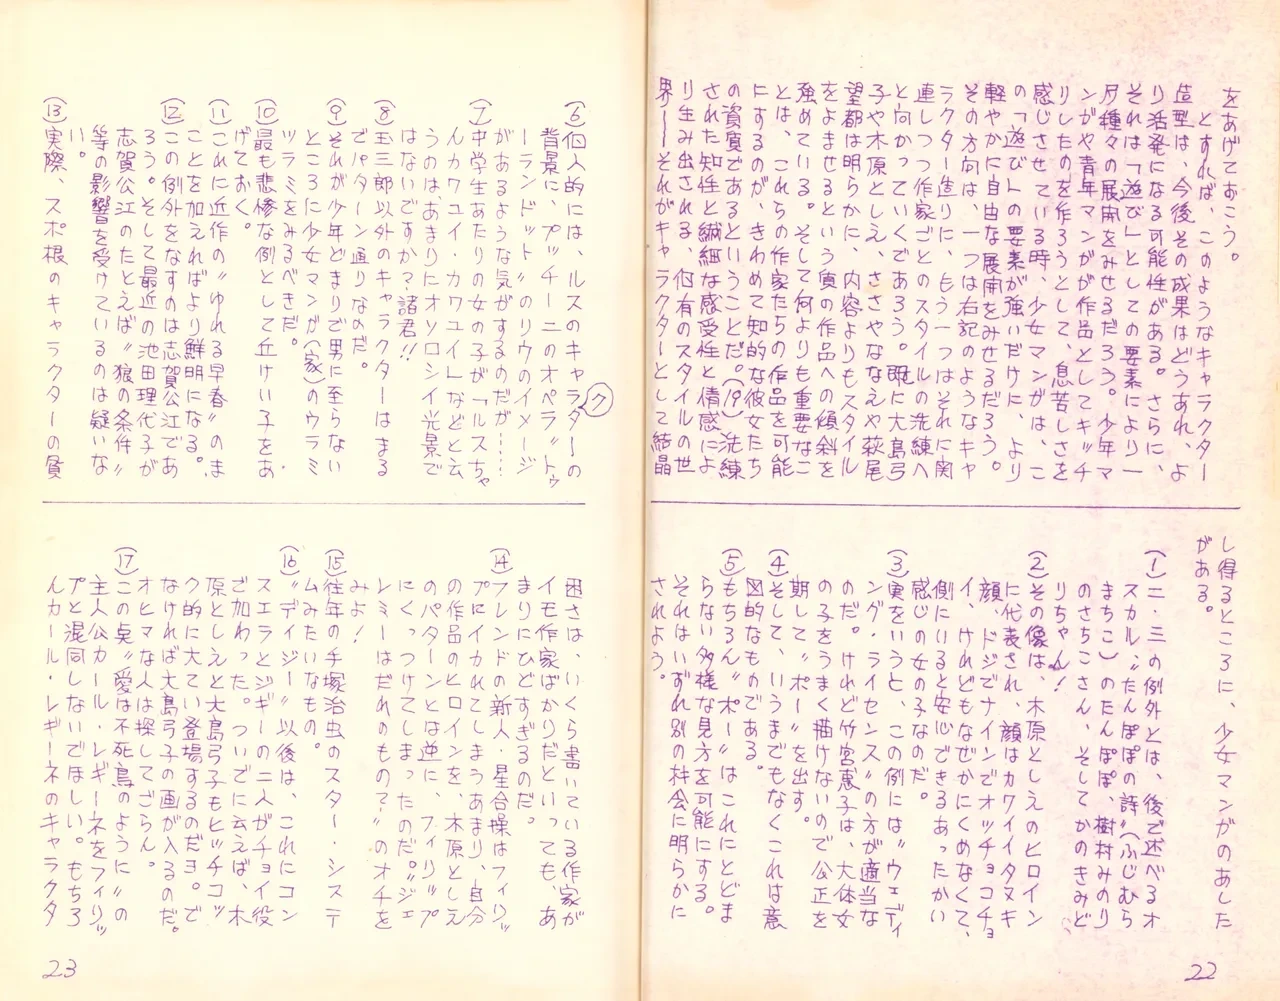 をあげておこう。
とすれば、このようなキャラクター
造型は、今後その成果はどうあれ、よ
り活発になる可能性がある。さらに、
それは「遊び」としての要素により一
層種々の展開をみせるだろう。少年マ
ンガや青年マンガが作品としてキッチ
りしたのを作ろうとして、息苦しさを
感じさせている時、少女マンガは、こ
の「遊び」の要素が強いだけに、より
軽やかに自由な展開をみせるだろう。
その方向は、一つは右記のようなキャ
ラクター造りに、もう一つはそれに関
連しつつ作家ごとのスタイルの洗練へ
と向かっていくであろう。既に大島弓
子や木原としえ、ささやななえや萩尾
望都は明らかに、内容よりもスタイル
をよませるという質の作品への傾斜を
強めている。そして何よりも重要なこ
とは、これらの作家たちの作品を可能
にするのが、きわめて知的な彼女たち
の資質であるということだ。(19)洗練
された知性と繊細な感受性と情感によ
り生み出される、個有のスタイルの世
界——それがキャラクターとして結晶
し得るところに、少女マンガのあした
がある。
(1)二・三の例外とは、後で述べるオ
スカル、〝たんぽぽの詩〟(ふじむら
まちこ)のたんぽぽ、樹村みのり
のさちこさん、そしてかのきみど
りちゃん!
(2)その像は、木原としえのヒロイン
に代表され、顔はカワイイタヌキ
顔、ドジでナインでオッチョコチョ
イ、けれどもなぜかにくめなくて、
側にいると安心できるあったかい
感じの女の子なのだ。
(3)実をいうと、この例には〝ウェディ
ング・ライセンス〟の方が適当な
のだ。けれど竹宮恵子は、大体女
の子をうまく描けないので公正を
期して〝ポー〟を出す。
(4)そして、いうまでもなくこれは意
図的なものである。
(5)もちろん〝ポー〟はこれにとどま
らない多様な見方を可能にする。
それはいずれ別の枠会に明らかに
されよう。
22
(6)個人的には、ルスのキャラターの
ク
背景に、プッチーニのオペラ〝トゥ
ーランドット〟のリウのイメージ
があるような気がするのだが……
(7)中学生あたりの女の子が「ルスちゃ
んカワユイ・カワユイ」などと云
うのは、あまりにオソロシイ光景で
はないですか?諸君!!
(8)玉三郎以外のキャラクターはまる
でパターン通りなのだ。
(9)それが少年どまりで男に至らない
ところに少女マンガ(家)のウラミ
ツラミをみるべきだ。
(10)最も悲惨な例として丘けい子をあ
げておく。
(11)これに近作の〝ゆれる早春〟のま
ことを加えればより鮮明になる。
(12)この例外をなすのは志賀公江であ
ろう。そして最近の池田理代子が
志賀公江のたとえば〝狼の条件〟
等の影響を受けているのは疑いな
い。
(13)実際、スポ根のキャラクターの貧
困さは、いくら書いている作家が
イモ作家ばかりだといっても、あ
まりにひどすぎるのだ。
(14)フレンドの新人・星合操はフィリッ
プにイカれてしまうあまり、自分
の作品のヒロインを、木原としえ
のパターンとは逆に、フィリップ
にくっつけてしまったのだ。〝ジェ
レミーはだれのもの?〟のオチを
みよ!
(15)往年の手塚治虫のスター・システ
ムみたいなもの。
(16)〝デイジー〟以後は、これにコン
スエラとジギーの二人がチョイ役
で加わった。ついでに云えば、木
原としえと大島弓子もヒッチコッ
ク的に大てい登場するのだヨ。で
なければ大島弓子の画が入るのだ。
オヒマな人は探してごらん。
(17)この点〝愛は不死鳥のように〟の
主人公カール・レギーネをフィリッ
プと混同しないでほしい。もちろ
んカール・レギーネのキャラクタ
23